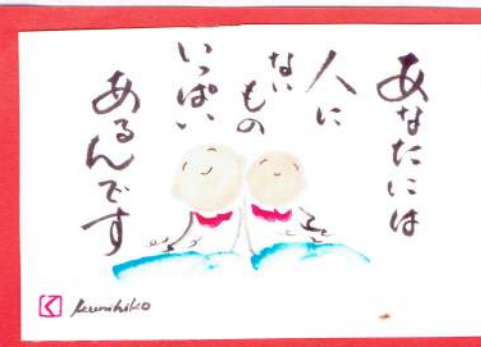 あなたには
人に
ない
もの
いっぱい
あるんです
く
Kunihiko